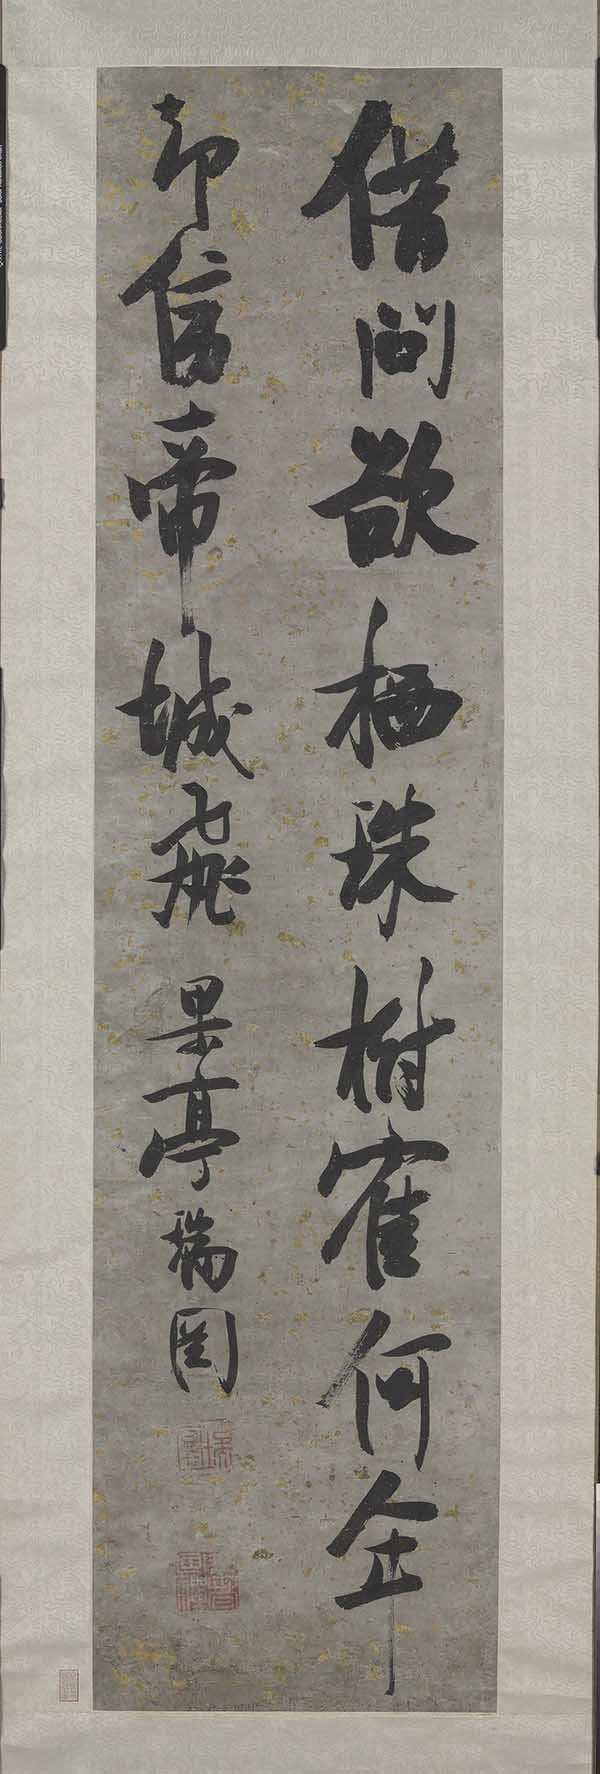 借問欲栖珠樹寉何年
却向帝城飛果亭瑞圖